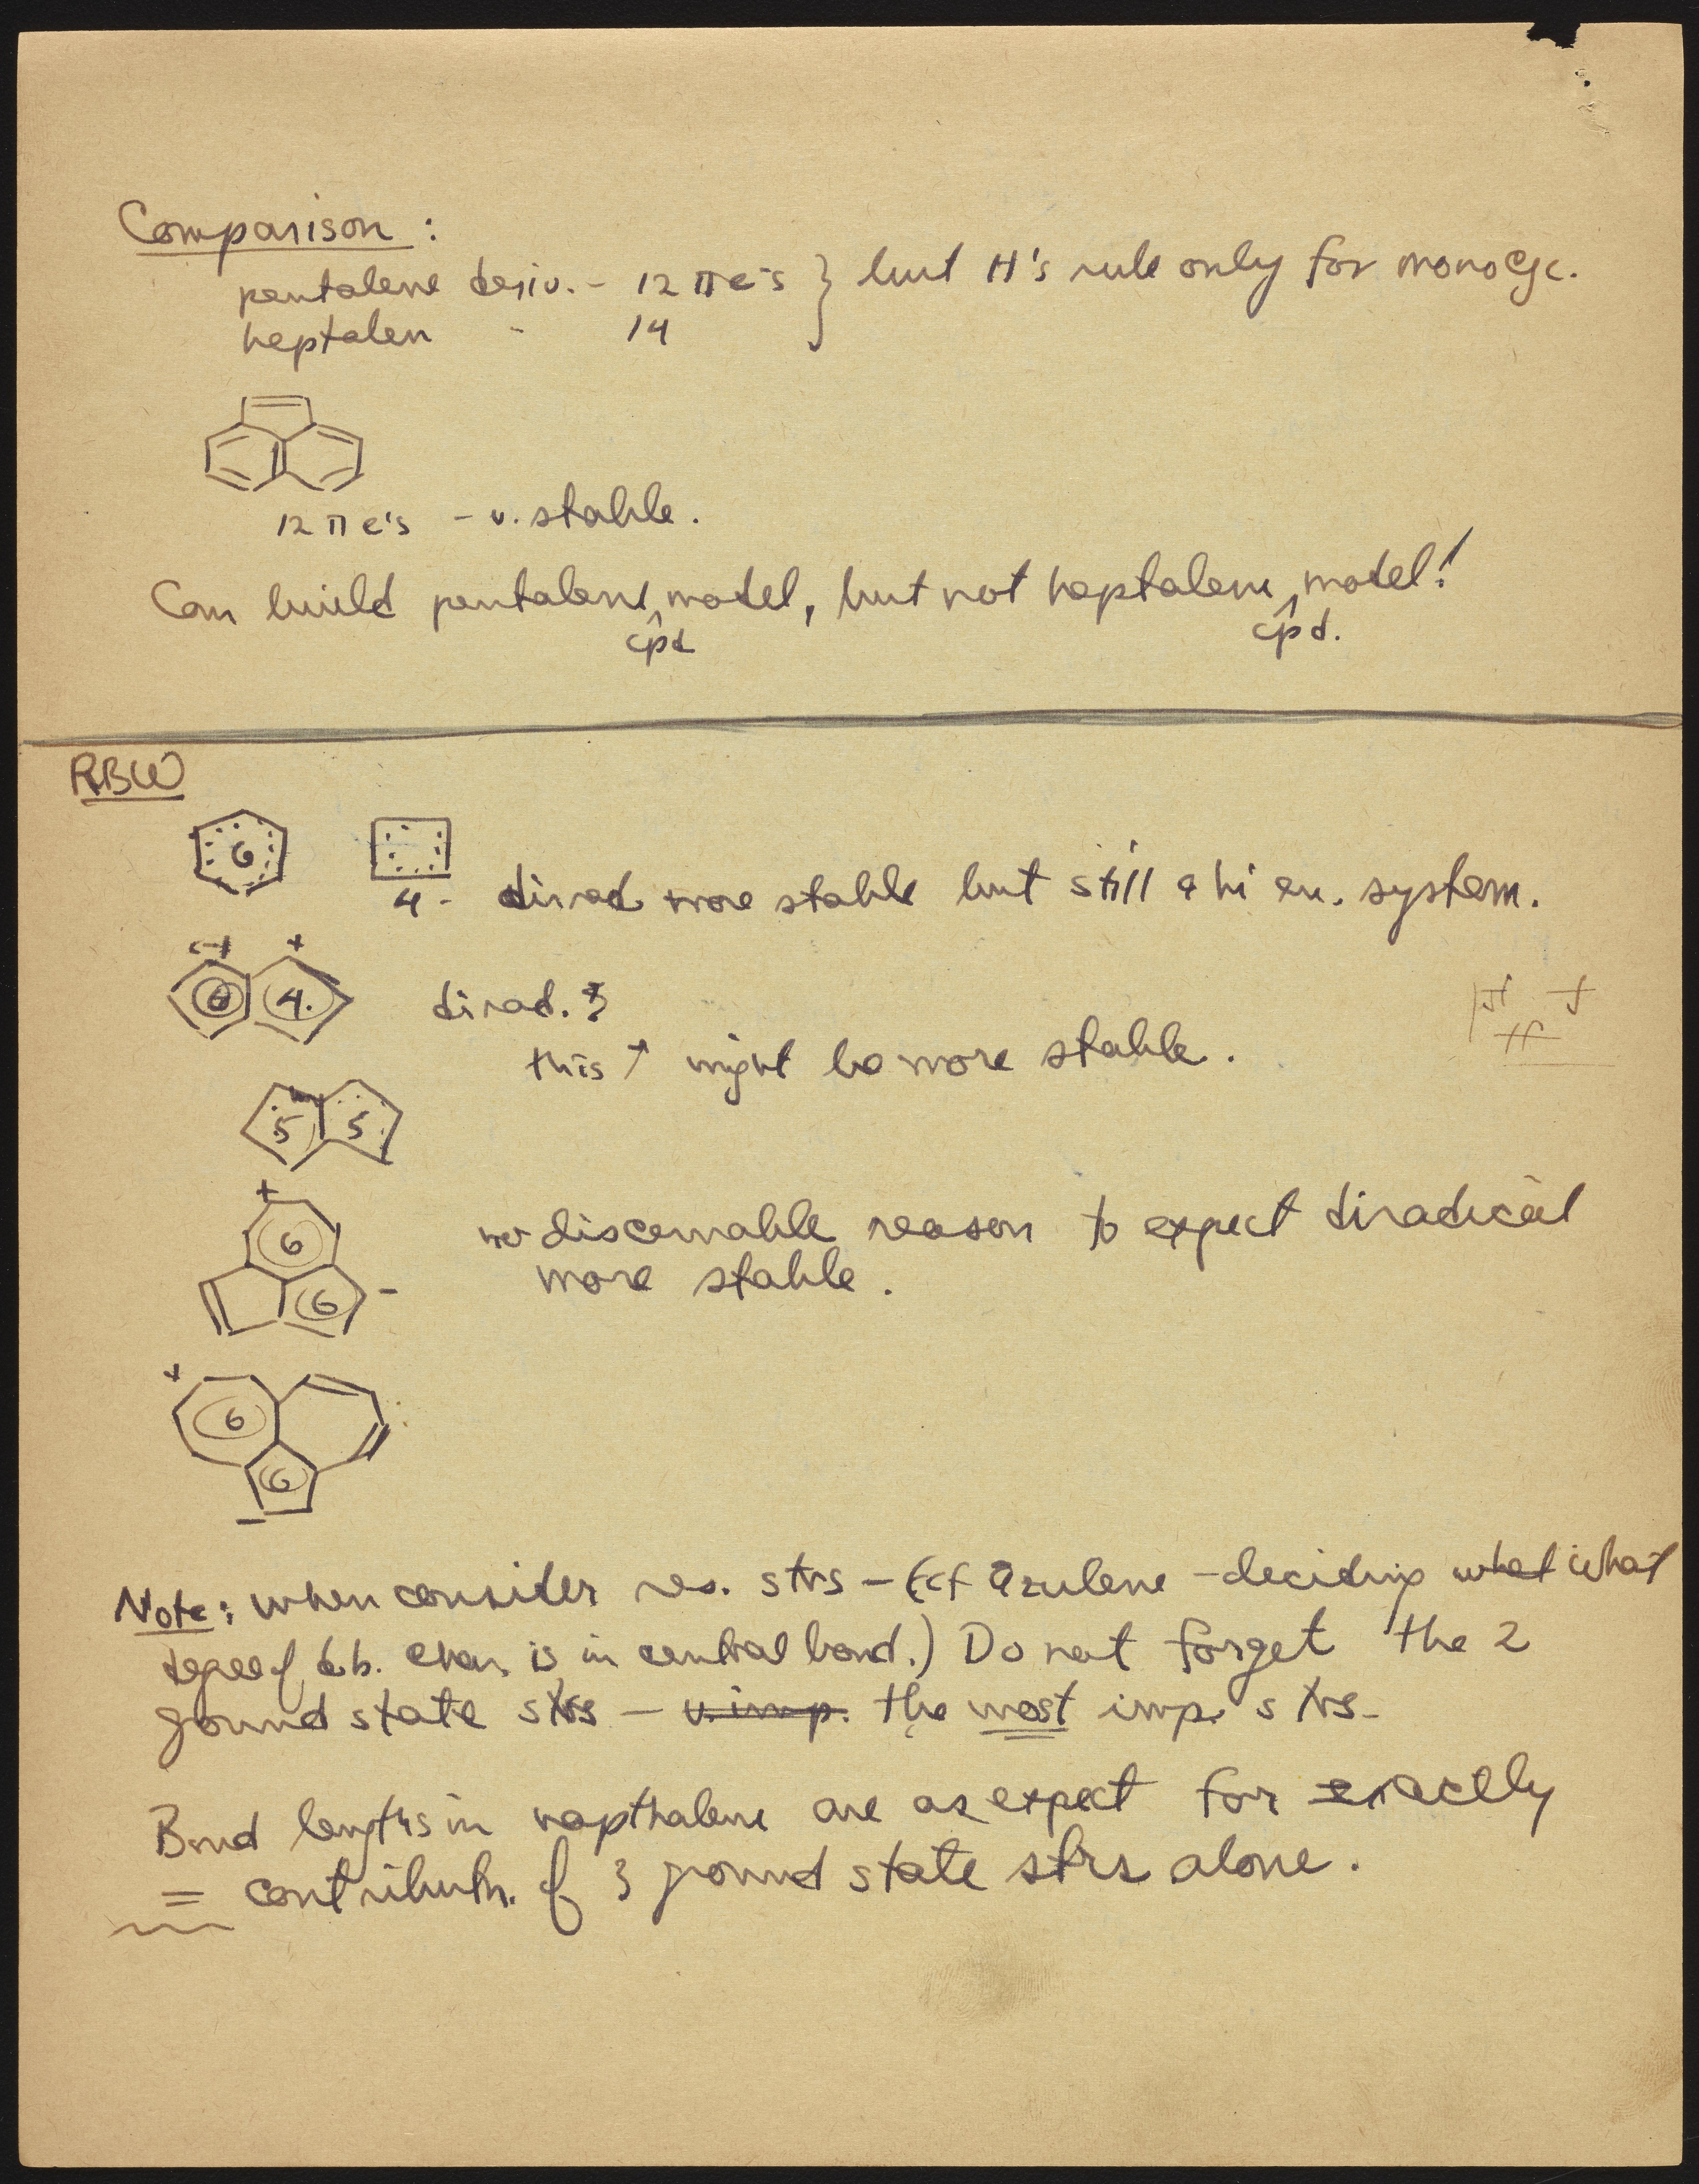 Comparison :
pentalene deriv. - 12 π e's } but H's rule only for monocyc.
heptalen - 14
12 π e's - v. stable.
Can build pentalene ^ model, but not heptalene ^ model!
cpd cpd.
RBW
6
4 - dirad more stable but still a hi en. system.
(-) +
6 4. dirad. ?
this ↑ might be more stable.
5 5
+
6 no discernable reason to expect diradical
6 -
more stable.
+
6
6
-
Note: when consider res. strs - (cf azulene - deciding what what
degree of db. char. is in central bond.) Do not forget the 2
ground state strs - v. imp. the most imp. strs -
Bond lengths in napthalene are as expect for exactly
= contributn. of 3 ground state strs alone.